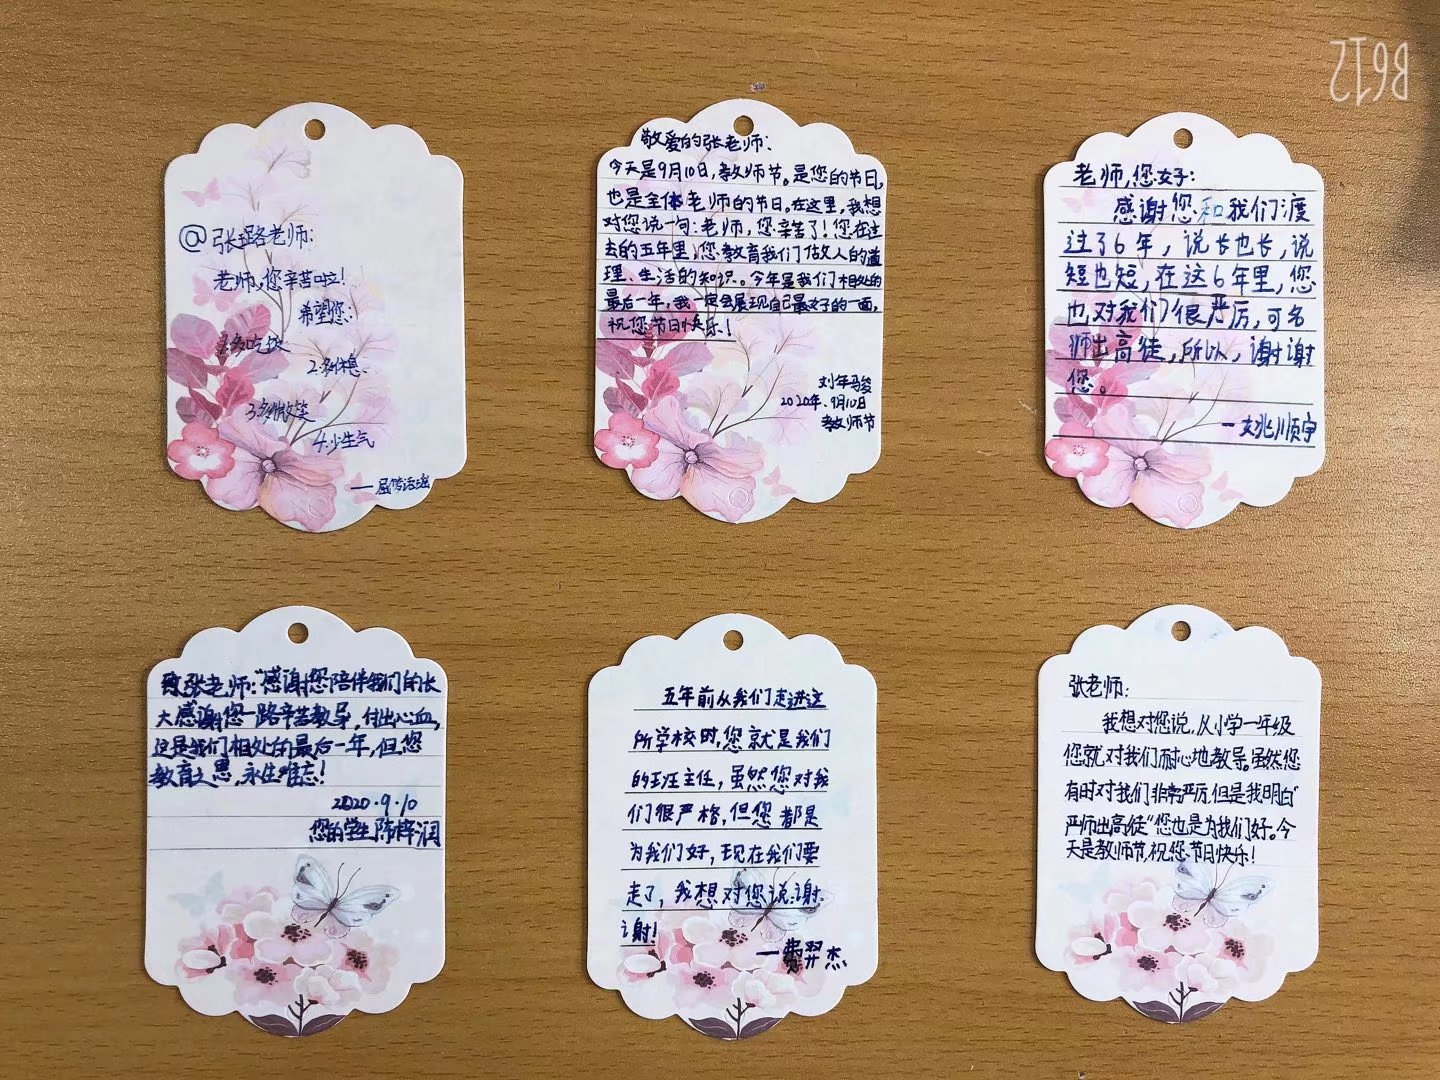 @张璐老师:
老师,您辛苦啦!
希望您:
多吃饭
2.多休息
3.多微笑
4.少生气
敬爱的张老师:
今天是9月10日,教师节。是您的节日,
也是全体老师的节日。在这里,我想
对您说一句:老师,您辛苦了!您在过
去的五年里,您教育我们做人的道
理、生活的知识。今年是我们相处的
最后一年,我一定会展现自己最好的一面,
祝您节日快乐!
刘年骏
2020年.9月10日
教师节
老师,您好:
感谢您和我们渡
过了6年,说长也长,说
短也短,在这6年里,您
也对我们很严厉,可名
师出高徒,所以,谢谢
您。
—姚顺宇
致张老师:"感谢您陪伴我们的长
大感谢您一路辛苦教导,付出心血,
这是我们相处的最后一年,但您
教育之恩,永生难忘!
2020.9.10
您的学生陈梓润
五年前从我们走进这
所学校时,您就是我们
的班主任,虽然您对我
们很严格,但您都是
为我们好,现在我们要
走了,我想对您说:谢
谢!
—费羿杰
张老师:
我想对您说,从小学一年级
您就对我们耐心地教导。虽然您
有时对我们非常严厉,但是我明白"
严师出高徒"您也是为我们好。今
天是教师节,祝您节日快乐!
B612